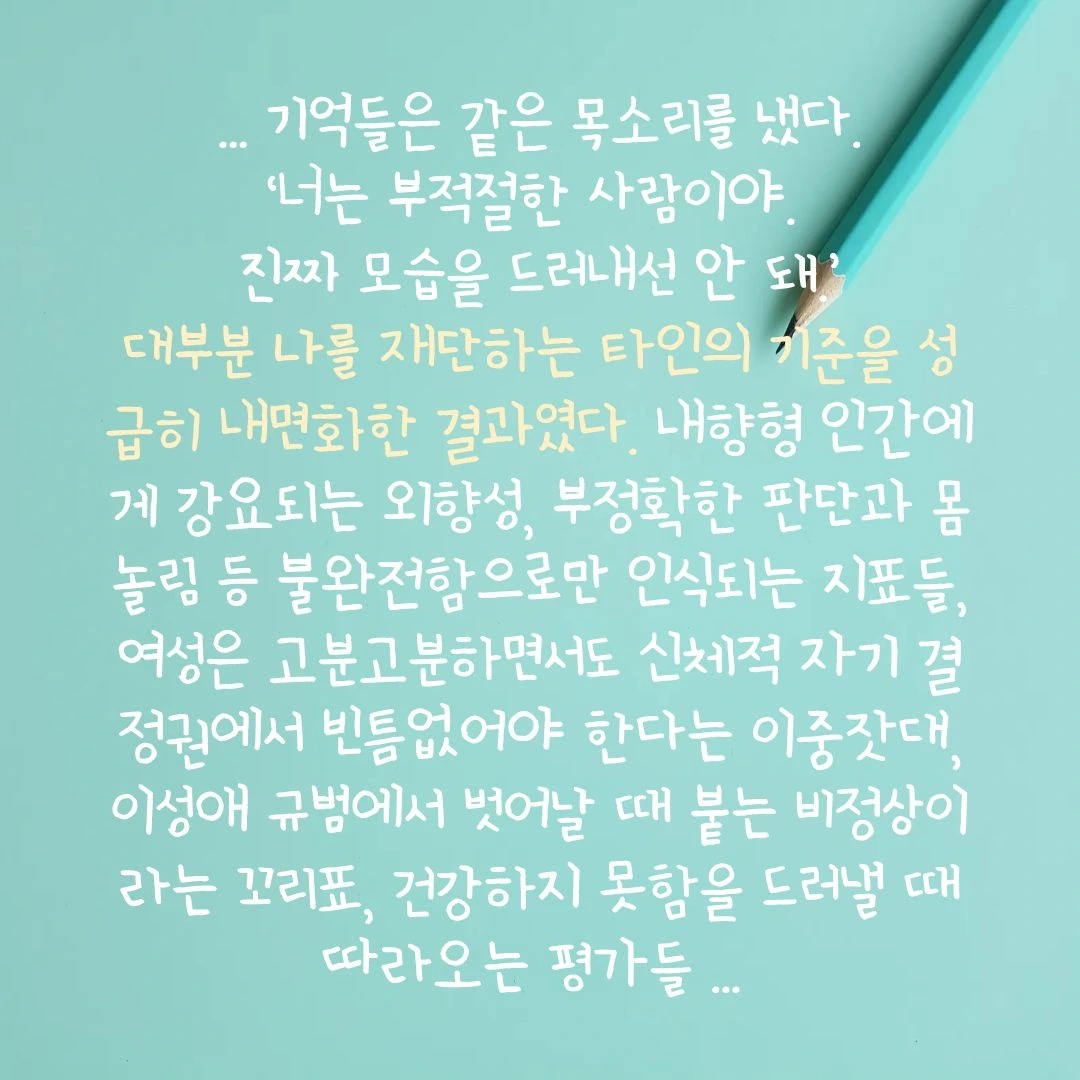 ... 기억들은 같은 목소리를 냈다.
‘너는 부적절한 사람이야.
진짜 모습을 드러내선 안 돼.’
대부분 나를 재단하는 타인의 기준을 성
급히 내면화한 결과였다. 내향형 인간에
게 강요되는 외향성, 부정확한 판단과 몸
놀림 등 불완전함으로만 인식되는 지표들,
여성은 고분고분하면서도 신체적 자기 결
정권에서 빈틈없어야 한다는 이중잣대,
이성애 규범에서 벗어날 때 붙는 비정상이
라는 꼬리표, 건강하지 못함을 드러낼 때
따라오는 평가들 ...